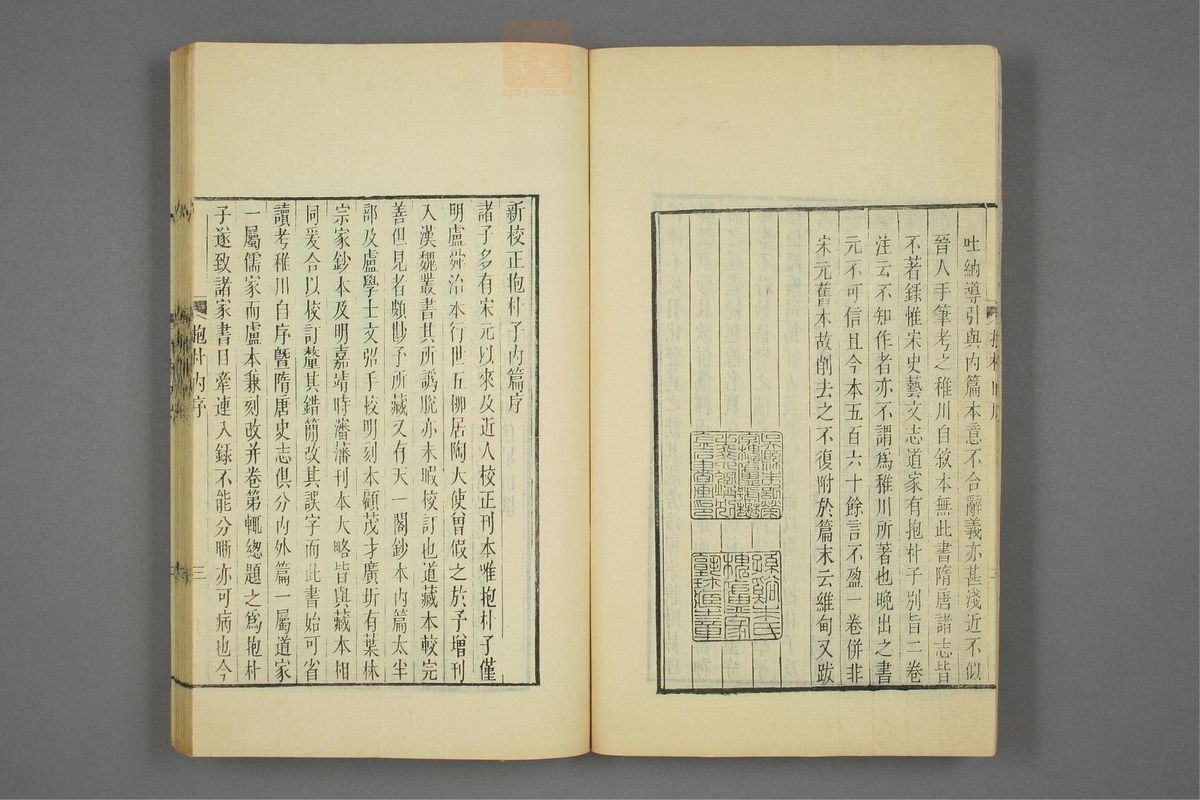 吐納導引與內篇本意不合辭義亦甚淺近不似
晉人手筆考之稚川自敘本無此書隋唐諸志皆
不著錄惟宋史藝文志道家有抱朴子別旨二卷
注云不知作者亦不謂爲稚川所著也晚出之書
元不可信且今本五百六十餘言不盈一卷併非
宋元舊本故削去之不復附於篇末云維甸又跋
新校正抱朴子內篇序
諸子多有宋元以來及近人校正刊本唯抱朴子僅
明盧舜治本行世五柳居陶大使曾假之於予增刊
入漢魏叢書其所譌脫亦未暇校訂也道藏本較完
善但見者頗尠予所藏又有天一閣鈔本內篇太半
部及盧學士文弨手校明刻本顧茂才廣圻有葉林
宗家鈔本及明嘉靖時瀋藩刊本大略皆與藏本相
同爰合以校訂釐其錯簡改其誤字而此書始可省
讀考稚川自序暨隋唐史志俱分內外篇一屬道家
一屬儒家而盧本兼刻改并卷第輒總題之爲抱朴
子遂致諸家書目牽連入録不能分晰亦可病也今
抱朴內序
三